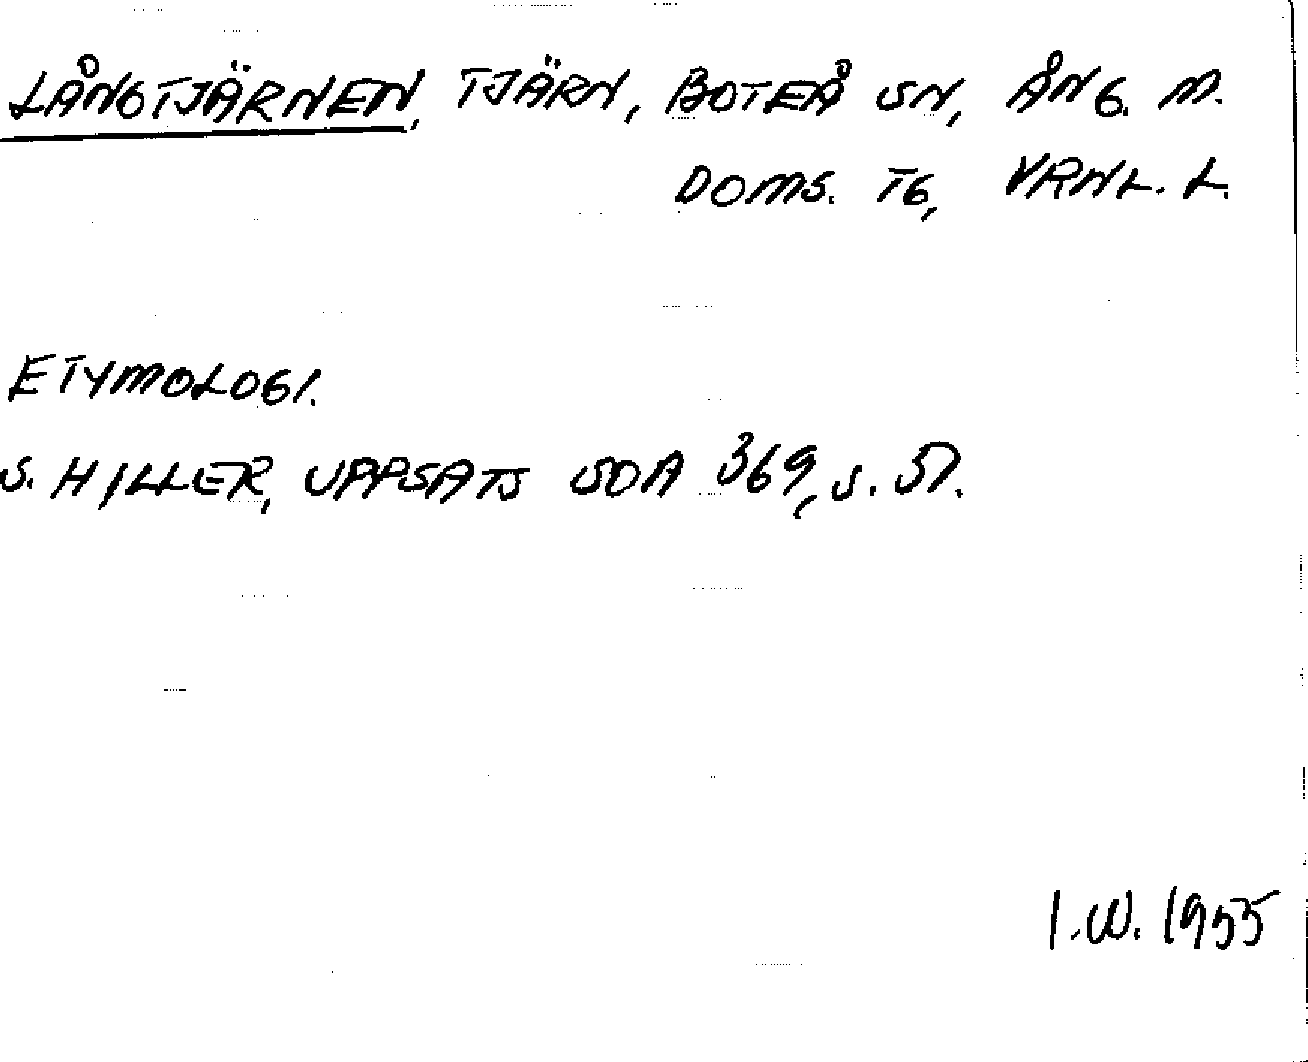 LÅNGTJÄRNEN, TJÄRN, BOTEÅ SN, ÅNG. M.
DOMS. TG, VRNL. L.
ETYMOLOGI.
S. HILLER, UPPSATS SOA 369, s. 57.
I.W. 1955